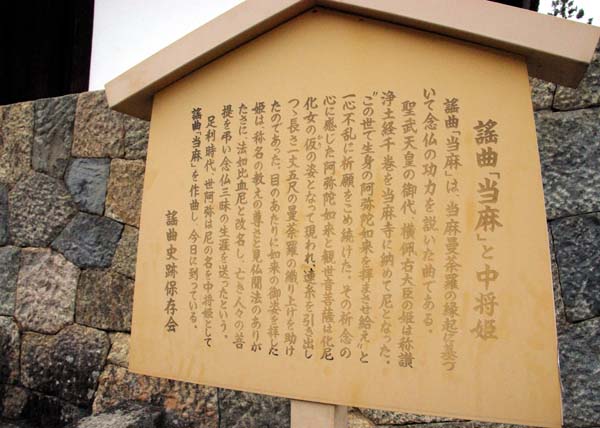 謡曲「当麻」と中将姫
謡曲「当麻」は、当麻曼荼羅の縁起に基づ
いて念仏の功力を説いた曲である。
聖武天皇の御代、横佩右大臣の姫は称讃
浄土経千巻を当麻寺に納めて尼となった。
“この世で生身の阿弥陀如来を拝まさせ給え”と
一心不乱に祈願をこめ続けた。その祈念の
心に感じた阿弥陀如来と観世音菩薩は化尼
化女の仮の姿となって現われ、蓮糸を引き出し
つゝ長き一丈五尺の曼荼羅の織り上げを助け
たのであった。目のあたりに如来の御姿を拝した
姫は称名の教えの尊さと見仏聞法のありが
たさに、法如比丘尼と改名し、亡き人々の菩
提を弔い念仏三昧の生涯を送ったという。
足利時代、世阿弥は尼の名を中将姫として
謡曲「当麻」を作曲し、今日に到っている。
謡曲史跡保存会